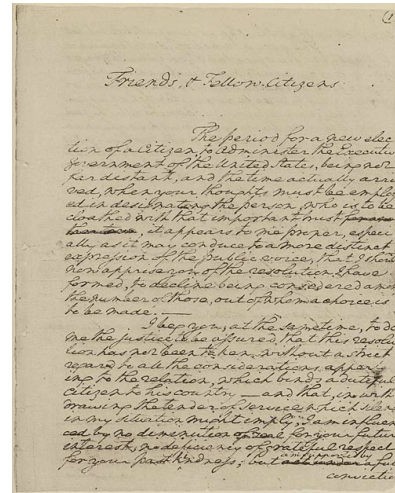 (1
Friends, & Fellow-Citizens
The period for a new elec
tion of a Citizen, to Administer the Executive
Government of the United States, being not
far distant, and the time actually arri
ved, when your thoughts must be employ
ed in designating the person, who is to be
cloathed with that important trust
it appears to me proper, especi
ally as it may conduce to a more distinct
expression of the public voice, that I should
now apprise you of the resolution I have
formed, to decline being considered among
the number of those, out of whom a choice is
to be made.
I beg you, at the same time, to do
me the justice to be assured, that this resolu
tion has not been taken, without a strict
regard to all the considerations apper
ing to the relation, which binds a dutiful
citizen to his country — and that, in with
drawing the tender of service which silence
in my situation might imply, I am influen
ced by no diminution of zeal for your future
interest, no deficiency of grateful respect
am supported by
for your past kindness; but a full
convictio